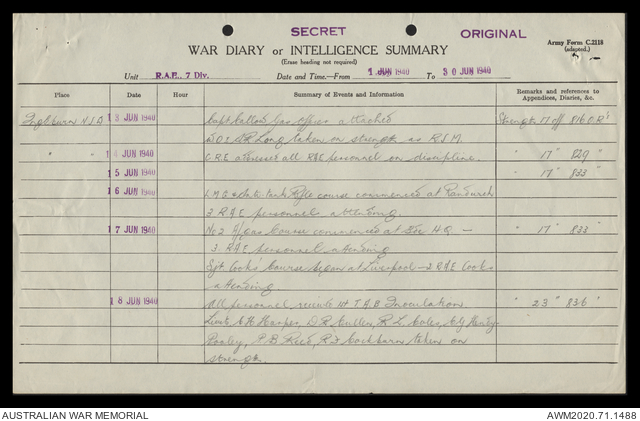 SECRET
ORIGINAL
WAR DIARY or INTELLIGENCE SUMMARY
(Erase heading not required)
Army Form C.2118
(adapted.)
Unit R.A.E., 7 Div. Date and Time—From 1 JUN 1940 To 30 JUN 1940
Place Date Hour Summary of Events and Information Remarks and references to Appendices, Diaries, &c.
Ingleburn N.S.W 13 JUN 1940 Capt Gas Officer attached Strength 17 off 816 O.R's
Long taken on strength as RSM.
" " 14 JUN 1940 CRE addressed all RAE personnel on discipline. " 17 " 829 "
15 JUN 1940 " 17 " 833 "
16 JUN 1940 L.M.G & Anti-Tank Rifle course commenced at Randwick
3 RAE personnel attending.
17 JUN 1940 No 2 A/gas Course commenced at Div H.Q. — " 17 " 833
3 RAE personnel attending
Sgt Cooks' Course began at Liverpool — 2 RAE Cooks
attending
18 JUN 1940 All personnel receive 1st T.A.B Inoculations. " 23 " 836 "
Lieuts Harper, D R Cullen, R L Coles,
Pooley, P B Reed, Cockburn taken on
strength.
AUSTRALIAN WAR MEMORIAL
AWM2020.71.1488